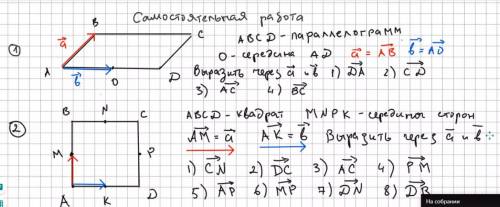 Самостоятельная работа
1
A B C D O
a⃗ b⃗
ABCD - параллелограмм
O - середина AD a⃗ = AB⃗ b⃗ = AO⃗
Выразить через a⃗ и b⃗ 1) DA⃗ 2) CD⃗
3) AC⃗ 4) BC⃗
2
B N C
M P
A K D
ABCD - квадрат MNPK - середины сторон
AM⃗ = a⃗ AK⃗ = b⃗ Выразить через a⃗ и b⃗
1) CN⃗ 2) DC⃗ 3) AC⃗ 4) PM⃗
5) AP⃗ 6) MP⃗ 7) DN⃗ 8) DB⃗
На собрании